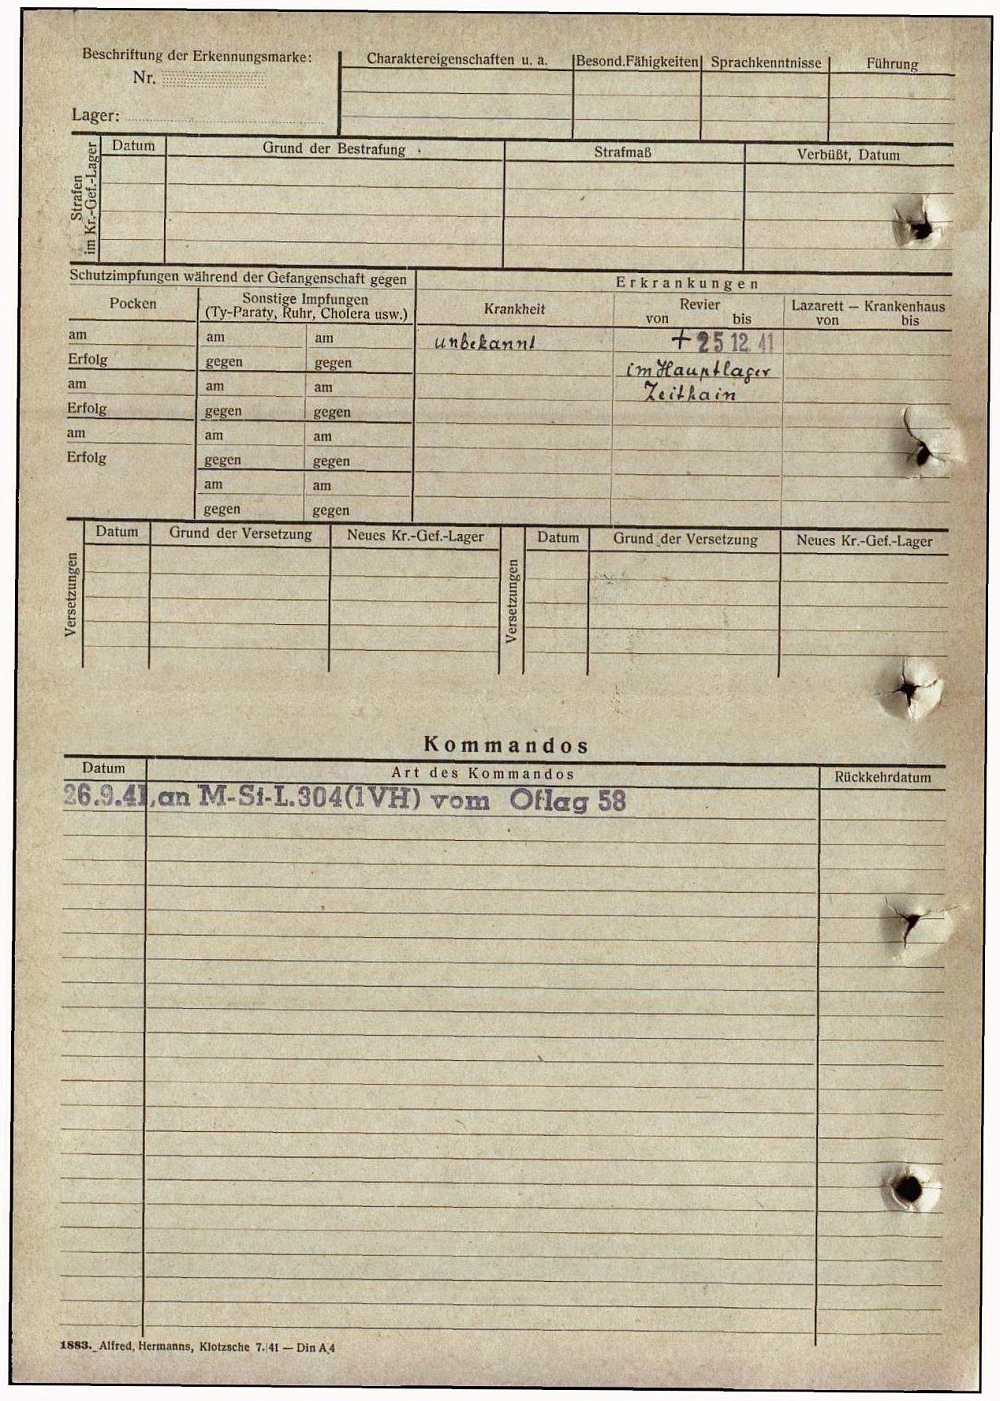 Beschriftung der Erkennungsmarke:
Nr.
Lager:
Charaktereigenschaften u. a. Besond.Fähigkeiten Sprachkenntnisse Führung
Strafen
im Kr.-Gef.-Lager
Datum Grund der Bestrafung Strafmaß Verbüßt, Datum
Schutzimpfungen während der Gefangenschaft gegen
Pocken
Sonstige Impfungen
(Ty-Paraty, Ruhr, Cholera usw.)
am am am
Erfolg gegen gegen
am am am
Erfolg gegen gegen
am am am
Erfolg gegen gegen
am am
gegen gegen
Erkrankungen
Krankheit
Revier
von bis
Lazarett — Krankenhaus
von bis
unbekannt + 25 12. 41
im Hauptlager
Zeithain
Versetzungen
Datum Grund der Versetzung Neues Kr.-Gef.-Lager
Versetzungen
Datum Grund der Versetzung Neues Kr.-Gef.-Lager
Kommandos
Datum Art des Kommandos Rückkehrdatum
26.9.41, an M-St-L.304(IVH) vom Oflag 58
1883. Alfred Hermanns, Klotzsche 7. 41 — Din A 4